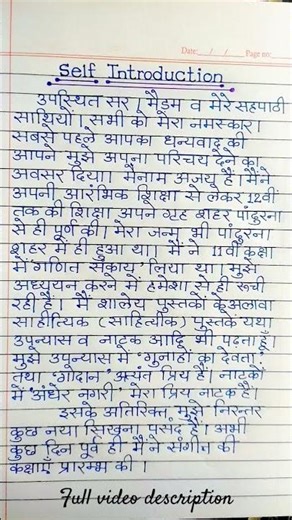 Date: / / Page no:
Self Introduction
उपस्थित सर । मैडम व मेरे सहपाठी
साथियों। सभी को मेरा नमस्कार।
सबसे पहले आपका धन्यवाद की
आपने मुझे अपना परिचय देने का
अवसर दिया। मेरा नाम अजय हैं। मैंने
अपनी आरंभिक शिक्षा से लेकर 12वीं
तक की शिक्षा अपने गृह शहर पांढुरना
से ही पूर्ण की। मेरा जन्म भी पांढुरना
शहर में ही हुआ था। मैंने 11वीं कक्षा
में 'गणित संकाय' लिया था। मुझे
अध्ययन करने में हमेशा से ही रूची
रही है। मैं शालेय पुस्तकों के अलावा
साहीत्यिक (साहित्यीक) पुस्तकें यथा
उपन्यास व नाटक आदि भी पढ़ता हूँ।
मुझे उपन्यास में 'गुनाहों का देवता'
तथा 'गोदान' अत्यंत प्रिय हैं। नाटकों
में अंधेर नगरी' मेरा प्रिय नाटक है।
इसके अतिरिक्त, मुझे निरन्तर
कुछ नया सिखना पसंद हैं। अभी
कुछ दिन पूर्व ही मैंने संगीत की
कक्षाएँ प्रारम्भ की ।
Full video description